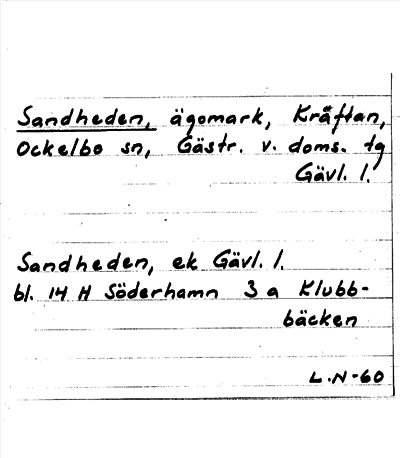 Sandheden, ägomark, Kråftan,
Ockelbo sn, Gästr. v. doms. tg
Gävl. l.
Sandheden, ek Gävl. l.
bl. 14 H Söderhamn 3 a Klubb-
bäcken
L.N-60